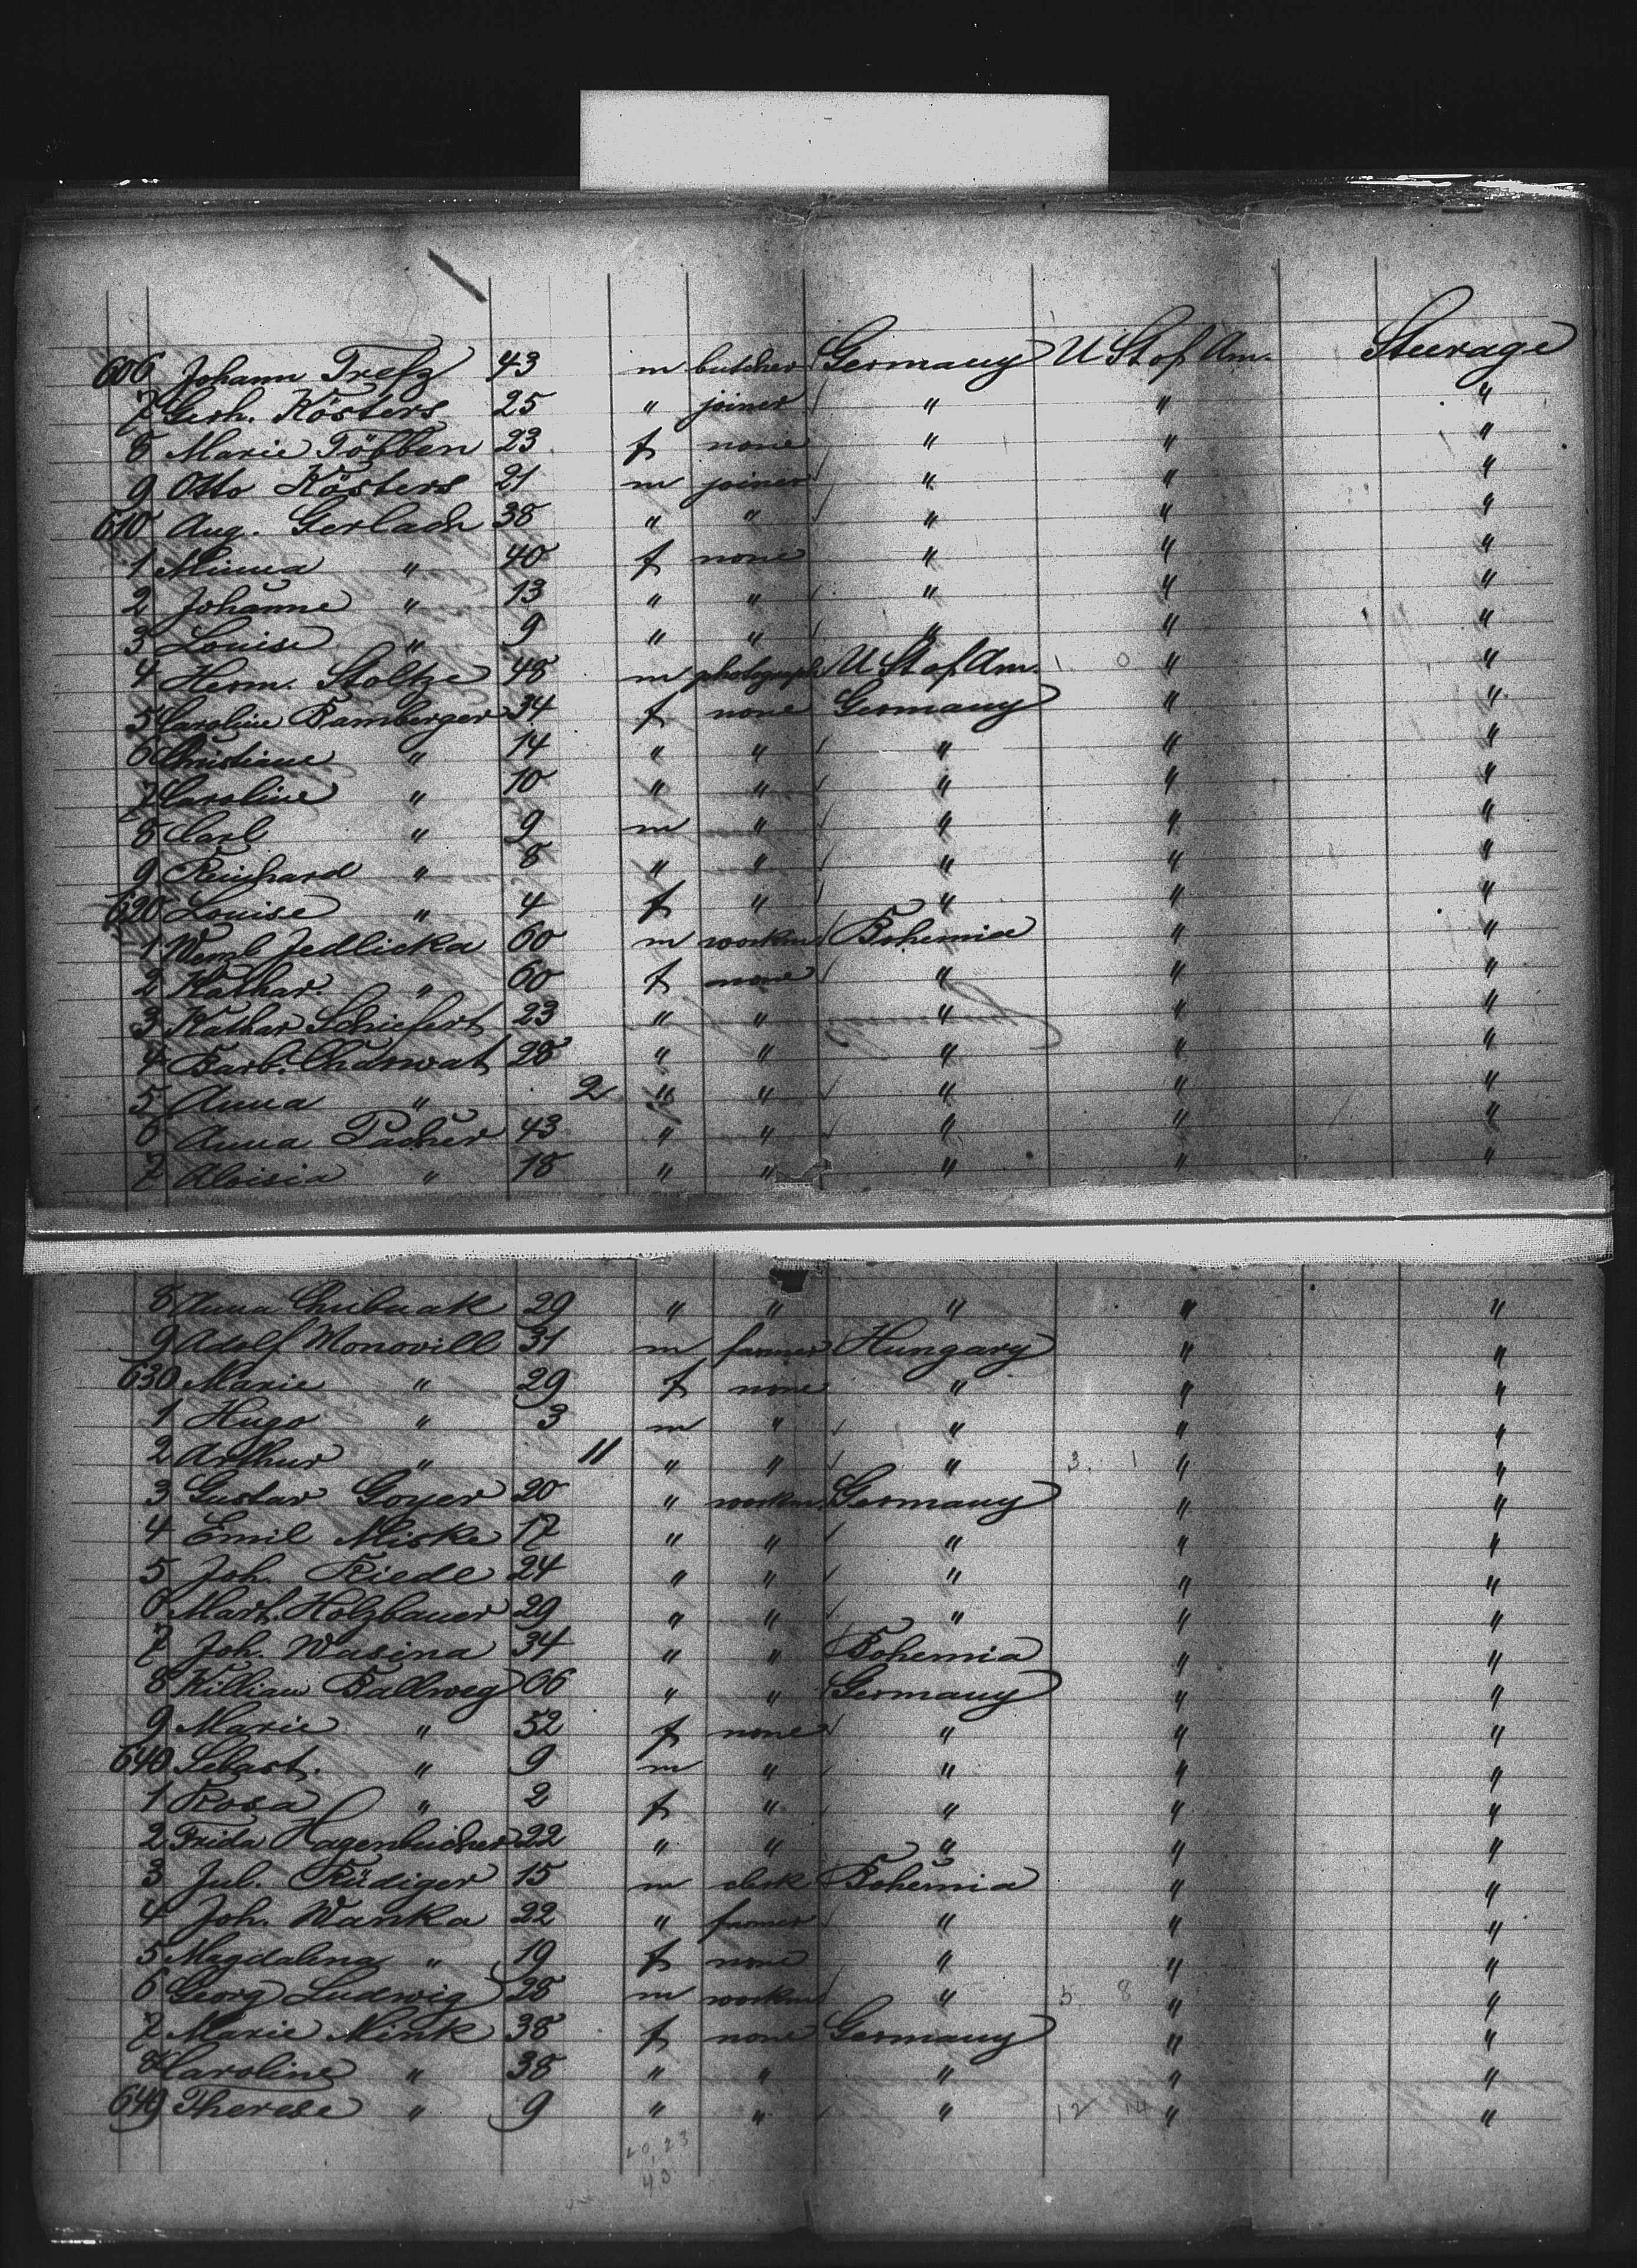 606 Johann Trefz 43 m butcher Germany U St of Am. Steerage
7 Gerh. Kösters 25 " joiner " " "
8 Marie Többen 23 f none " " "
9 Otto Kösters 21 m joiner " " "
610 Aug. Gerlach 38 " " " " "
1 Minna " 40 f none " " "
2 Johanne " 13 " " " " "
3 Louise " 9 " " " " "
4 Herm. Stoltze 48 m photograph U St of Am. "  "
5 Caroline Bamberger 34 f none Germany " "
6 Christiane " 14 " " " " "
7 Caroline " 10 " " " " "
8 Carl " 9 m " " " "
9 Reinhard " 8 " " " " "
620 Louise " 4 f " " " "
1 Wenzl Jedlicka 60 m workm Bohemia " "
2 Kathar. " 60 f none " " "
3 Kathar Schiefert 23 " " " " "
4 Barb. Charwat 28 " " " " "
5 Anna " 2 " " " " "
6 Anna Pacher 43 " " " " "
7 Aloisia " 18 " " " " "
8 Anna Chubnak 29 " " " " "
9 Adolf Monovill 31 m farmer Hungary " "
630 Marie " 29 f none " " "
1 Hugo " 3 m " " " "
2 Arthur " 11 " " " 3. 1 " "
3 Gustav Goyer 20 " workm. Germany " "
4 Emil Miske 17 " " " " "
5 Joh. Riede 24 " " " " "
6 Mart. Holzbauer 29 " " " " "
7 Joh. Wasina 34 " " Bohemia " "
8 Killian Ballweg 66 " " Germany " "
9 Marie " 52 f none " " "
640 Sebast. " 9 m " " " "
1 Rosa " 2 f " " " "
2 Frida Hagenbucher 22 " " " " "
3 Jul. Rüdiger 15 m clerk Bohemia " "
4 Joh. Wanka 22 " farmer " " "
5 Magdalena " 19 f none " " "
6 Georg Ludwig 28 m workm " 5. 8 " "
7 Marie Mink 38 f none Germany " "
8 Caroline " 38 " " " " "
649 Therese " 9 " " " 12 14 " "
20, 23
43